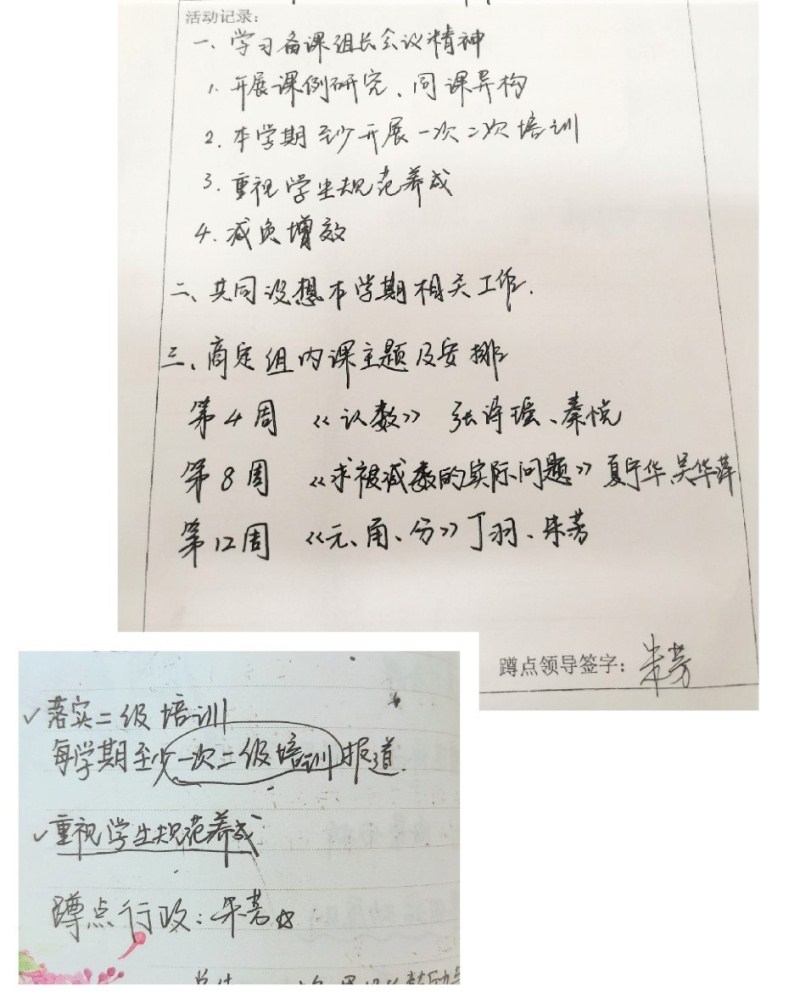 活动记录:
一、学习备课组长会议精神
1. 开展课例研究、同课异构
2. 本学期至少开展一次二次培训
3. 重视学生规范养成
4. 减负增效
二、共同设想本学期相关工作.
三、商定组内课主题及安排
第4周 《认数》 张诗瑶、秦悦
第8周 《求被减数的实际问题》 夏宁华 吴华萍
第12周 《元、角、分》 丁羽、朱芳
蹲点领导签字: 朱芳
✓落实二级培训
每学期至少一次二级培训报道.
✓重视学生规范养成
蹲点行政: 朱芳